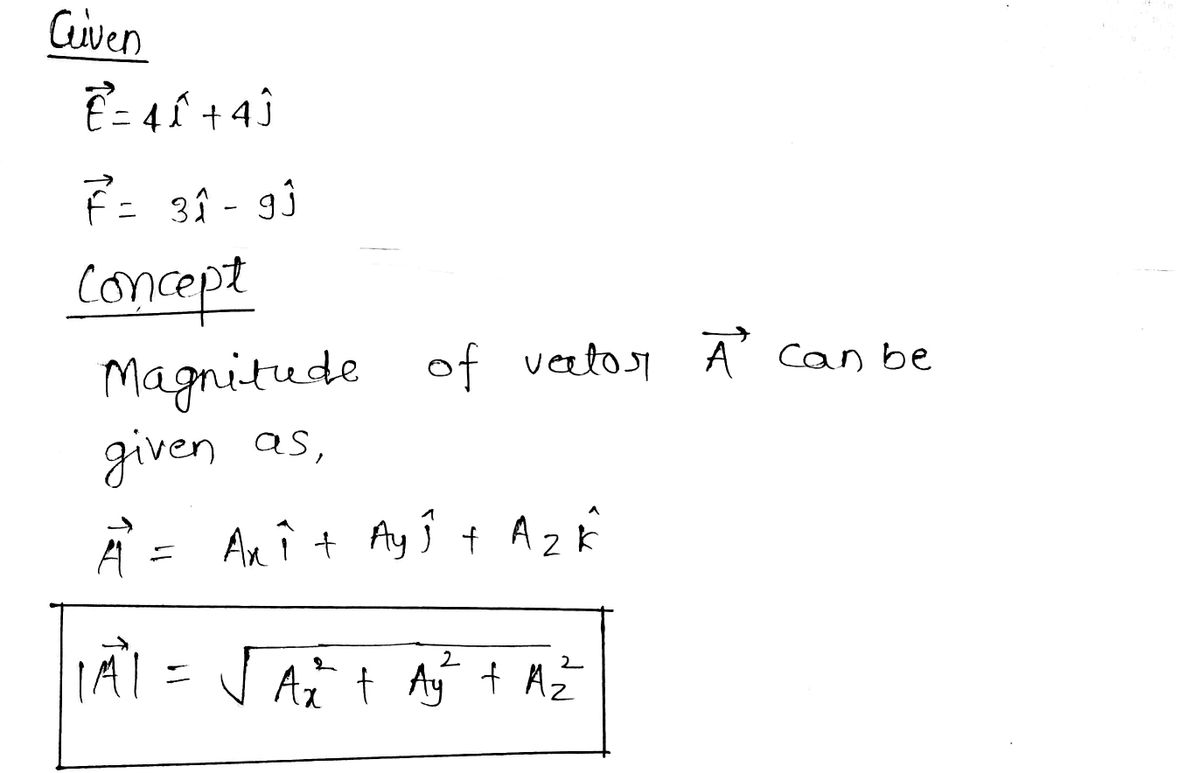 Given
E⃗ = 4î + 4ĵ
F⃗ = 3î - 9ĵ
Concept
Magnitude of vector A⃗ can be
given as,
A⃗ = Axî + Ayĵ + Azk̂
|A⃗| = √(Ax² + Ay² + Az²)